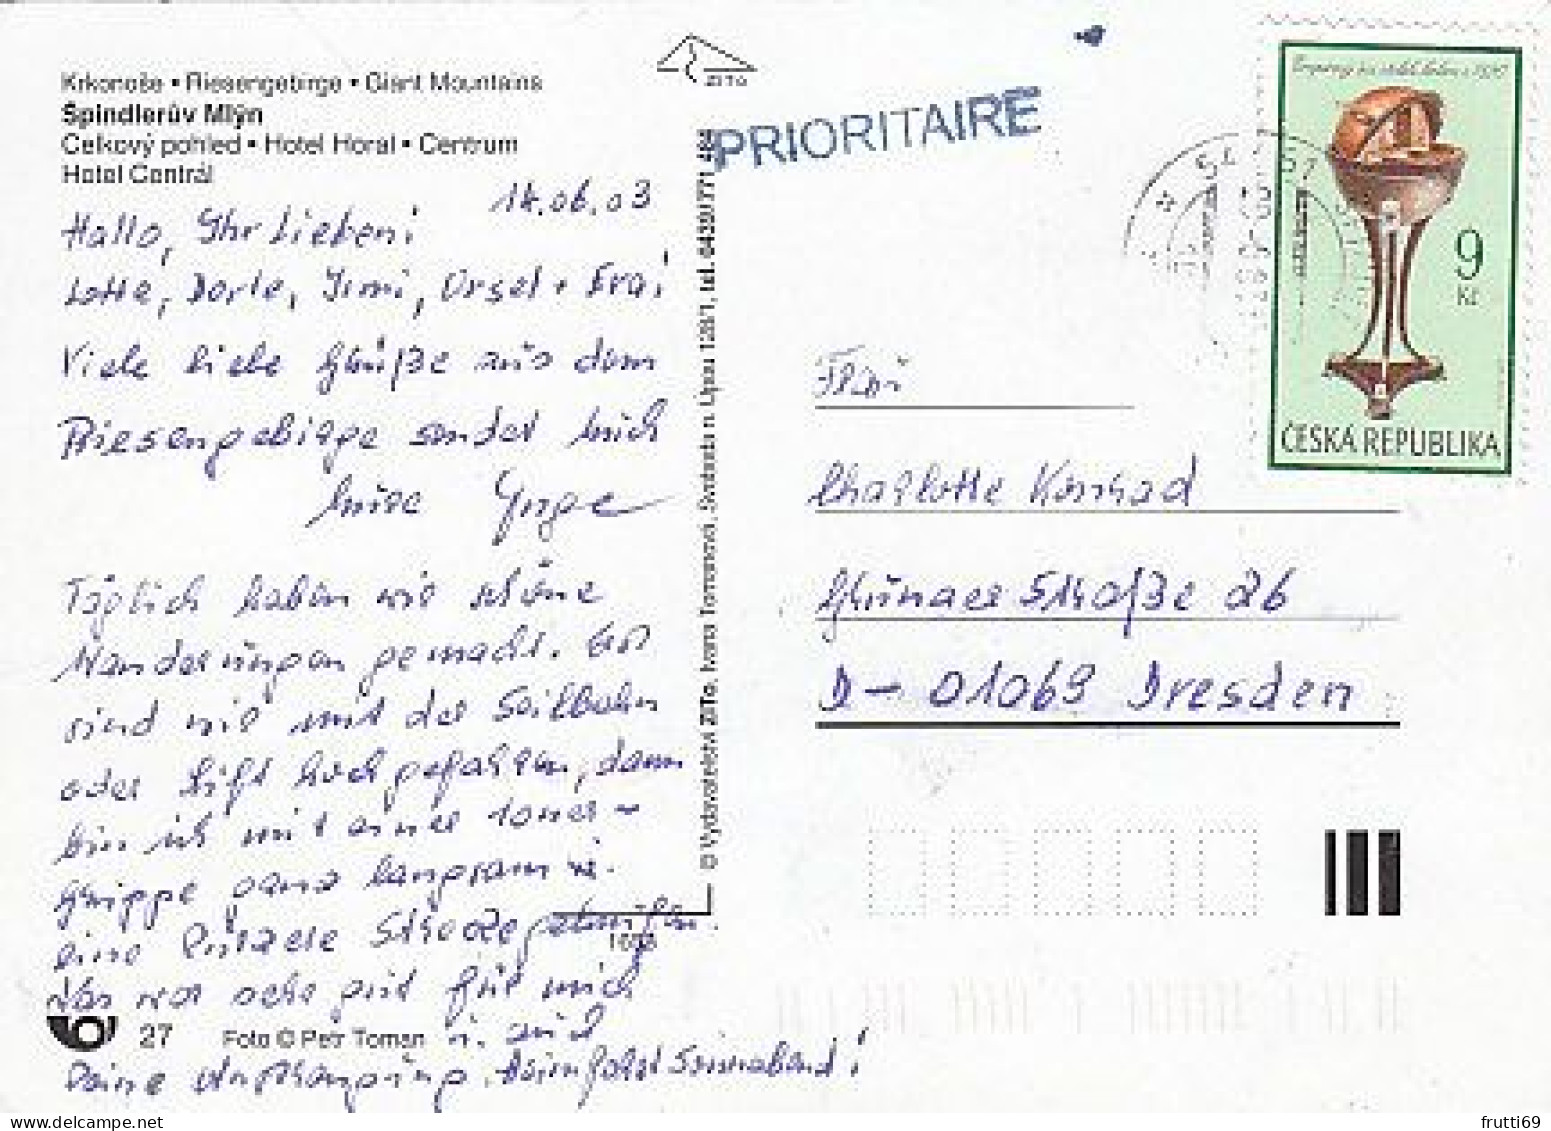 Krkonoše • Riesengebirge • Giant Mountains
Špindlerův Mlýn
Celkový pohled • Hotel Horal • Centrum
Hotel Centrál
14.06.03
Hallo, Ihr Lieben!
Lotte, Dorle, Irmi, Ursel + Eva!
Viele liebe Grüße aus dem
Riesengebirge sendet Euch
Eure Inge
Täglich haben wir schöne
Wanderungen gemacht. Erst
sind wir mit der Seilbahn
oder Lift hochgefahren, dann
bin ich mit einer
Gruppe ganz langsam
eine kürzere Strecke gelaufen.
Das war sehr gut für mich
u. und
keine Anstrengung. Heimfahrt Sonnabend!
27 Foto © Petr Toman
ZITO
© Vydavatelství ZITo, Ivana Tomanová, Svoboda n. Úpou 128/1, tel. 0439/771 484
PRIORITAIRE
9
Kč
ČESKÁ REPUBLIKA
Frau
Charlotte Konrad
Grunaer Straße 26
D - 01069 Dresden
frutti69